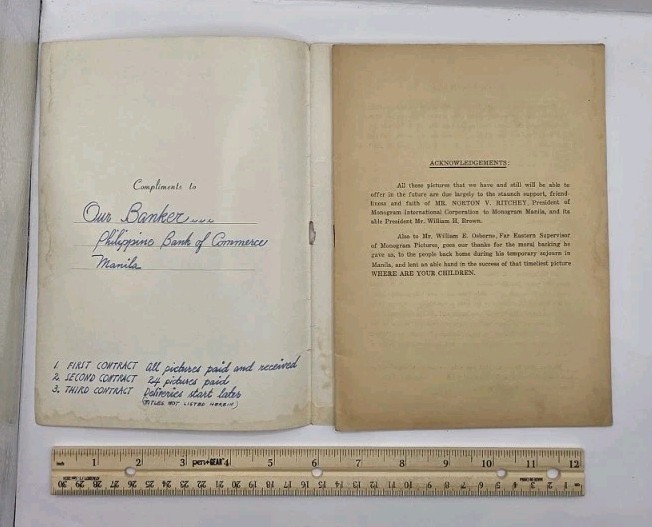 Compliments to
Our Banker
Philippine Bank of Commerce
Manila
1. FIRST CONTRACT All pictures paid and received
2. SECOND CONTRACT 24 pictures paid
3. THIRD CONTRACT Deliveries start later
(TITLES NOT LISTED HEREIN)
ACKNOWLEDGEMENTS:
All these pictures that we have and still will be able to
offer in the future are due largely to the staunch support, friend-
liness and faith of MR. NORTON V. RITCHEY, President of
Monogram International Corporation to Monogram Manila, and its
able President Mr. William H. Brown.
Also to Mr. William E. Osborne, Far Eastern Supervisor
of Monogram Pictures, goes our thanks for the moral backing he
gave us, to the people back home during his temporary sojourn in
Manila, and lent an able hand in the success of that timeliest picture
WHERE ARE YOUR CHILDREN.
1 2 3 pen+GEAR 4 5 6 7 8 9 10 11 12
30 29 28 27 26 25 24 23 22 21 20 19 18 17 16 15 14 13 12 11 10 9 8 7 6 5 4 3 2 1